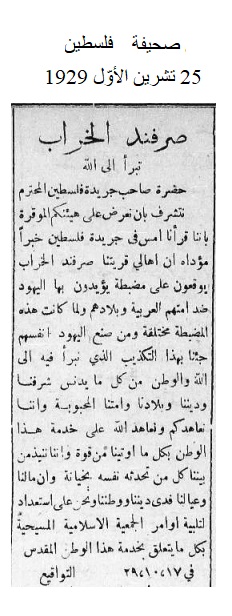 صحيفة فلسطين
25 تشرين الأوّل 1929
صرفند الخراب
تبرأ الى الله
حضرة صاحب جريدة فلسطين المحترم
نتشرف بان نعرض على هيئتكم الموقرة
باننا قرأنا امس في جريدة فلسطين خبراً
مؤداه ان اهالي قريتنا صرفند الخراب
يوقعون على مضبطة يؤيدون بها اليهود
ضد امتهم العربية وبلادهم ولما كانت هذه
المضبطة مختلقة ومن صنع اليهود انفسهم
جئنا بهذا التكذيب الذي نبرأ فيه الى
الله والوطن من كل ما يدنس شرفنا
وديننا وبلادنا وامتنا المحبوبة واننا
نعاهدكم ونعاهد الله على خدمة هذا
الوطن بكل ما اوتينا من قوة واننا ننبذ من
بيننا كل من تحدثه نفسه بخيانة وان مالنا
وعيالنا فدى ديننا ووطننا ونحن على استعداد
لتلبية اوامر الجمعية الاسلامية المسيحية
بكل ما يتعلق بخدمة هذا الوطن المقدس
في ١٧،١٠،٢٩ التواقيع